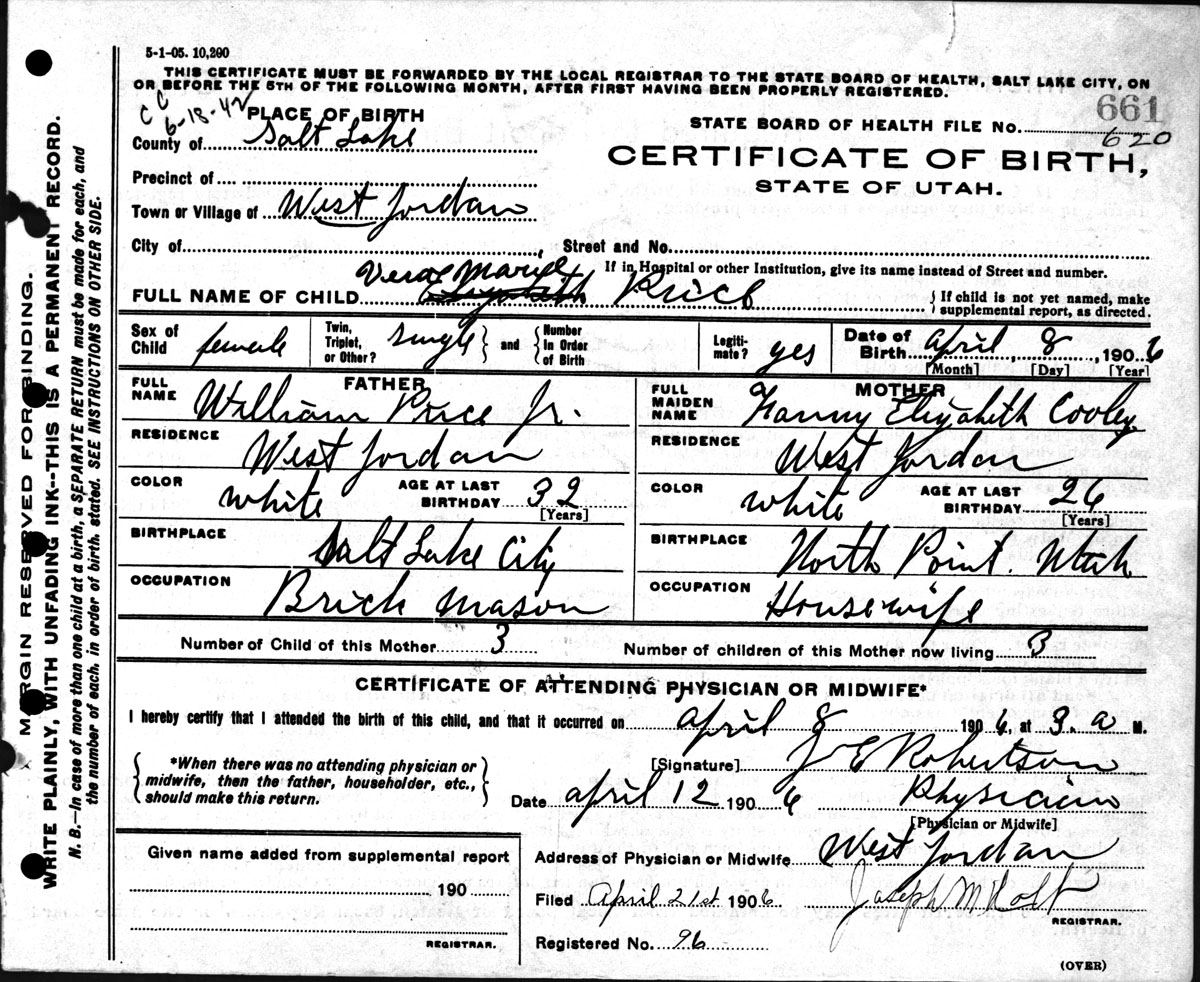 5-1-05. 10,200
THIS CERTIFICATE MUST BE FORWARDED BY THE LOCAL REGISTRAR TO THE STATE BOARD OF HEALTH, SALT LAKE CITY, ON
OR BEFORE THE 5TH OF THE FOLLOWING MONTH, AFTER FIRST HAVING BEEN PROPERLY REGISTERED.
CC
6-18-42
661
PLACE OF BIRTH
STATE BOARD OF HEALTH FILE No. 620
County of Salt Lake
CERTIFICATE OF BIRTH,
STATE OF UTAH.
Precinct of
Town or Village of West Jordan
City of , Street and No.
If in Hospital or other Institution, give its name instead of Street and number.
Verae Marye
FULL NAME OF CHILD Elizabeth Price
{ If child is not yet named, make
supplemental report, as directed.
Sex of Child female
Twin, Triplet, or Other? single } and { Number In Order of Birth
Legitimate? yes
Date of Birth April, 8, 1906
[Month] [Day] [Year]
FATHER
FULL NAME William Price Jr.
RESIDENCE West Jordan
COLOR white AGE AT LAST BIRTHDAY 32
[Years]
BIRTHPLACE Salt Lake City
OCCUPATION Brick Mason
MOTHER
FULL MAIDEN NAME Fanny Elizabeth Cooley
RESIDENCE West Jordan
COLOR white AGE AT LAST BIRTHDAY 26
[Years]
BIRTHPLACE North Point. Utah
OCCUPATION Housewife
Number of Child of this Mother 3
Number of children of this Mother now living 3
CERTIFICATE OF ATTENDING PHYSICIAN OR MIDWIFE*
I hereby certify that I attended the birth of this child, and that it occurred on April 8 1906, at 3. a M.
{ *When there was no attending physician or
midwife, then the father, householder, etc.,
should make this return. }
[Signature] J E Robertson
Date April 12 1906 Physician
[Physician or Midwife]
Given name added from supplemental report
190
REGISTRAR.
Address of Physician or Midwife West Jordan
Filed April 21st 1906 Joseph M Holt
REGISTRAR.
Registered No. 96
(OVER)
MARGIN RESERVED FOR BINDING.
WRITE PLAINLY, WITH UNFADING INK--THIS IS A PERMANENT RECORD.
N. B.—In case of more than one child at a birth, a SEPARATE RETURN must be made for each, and
the number of each, in order of birth, stated. SEE INSTRUCTIONS ON OTHER SIDE.